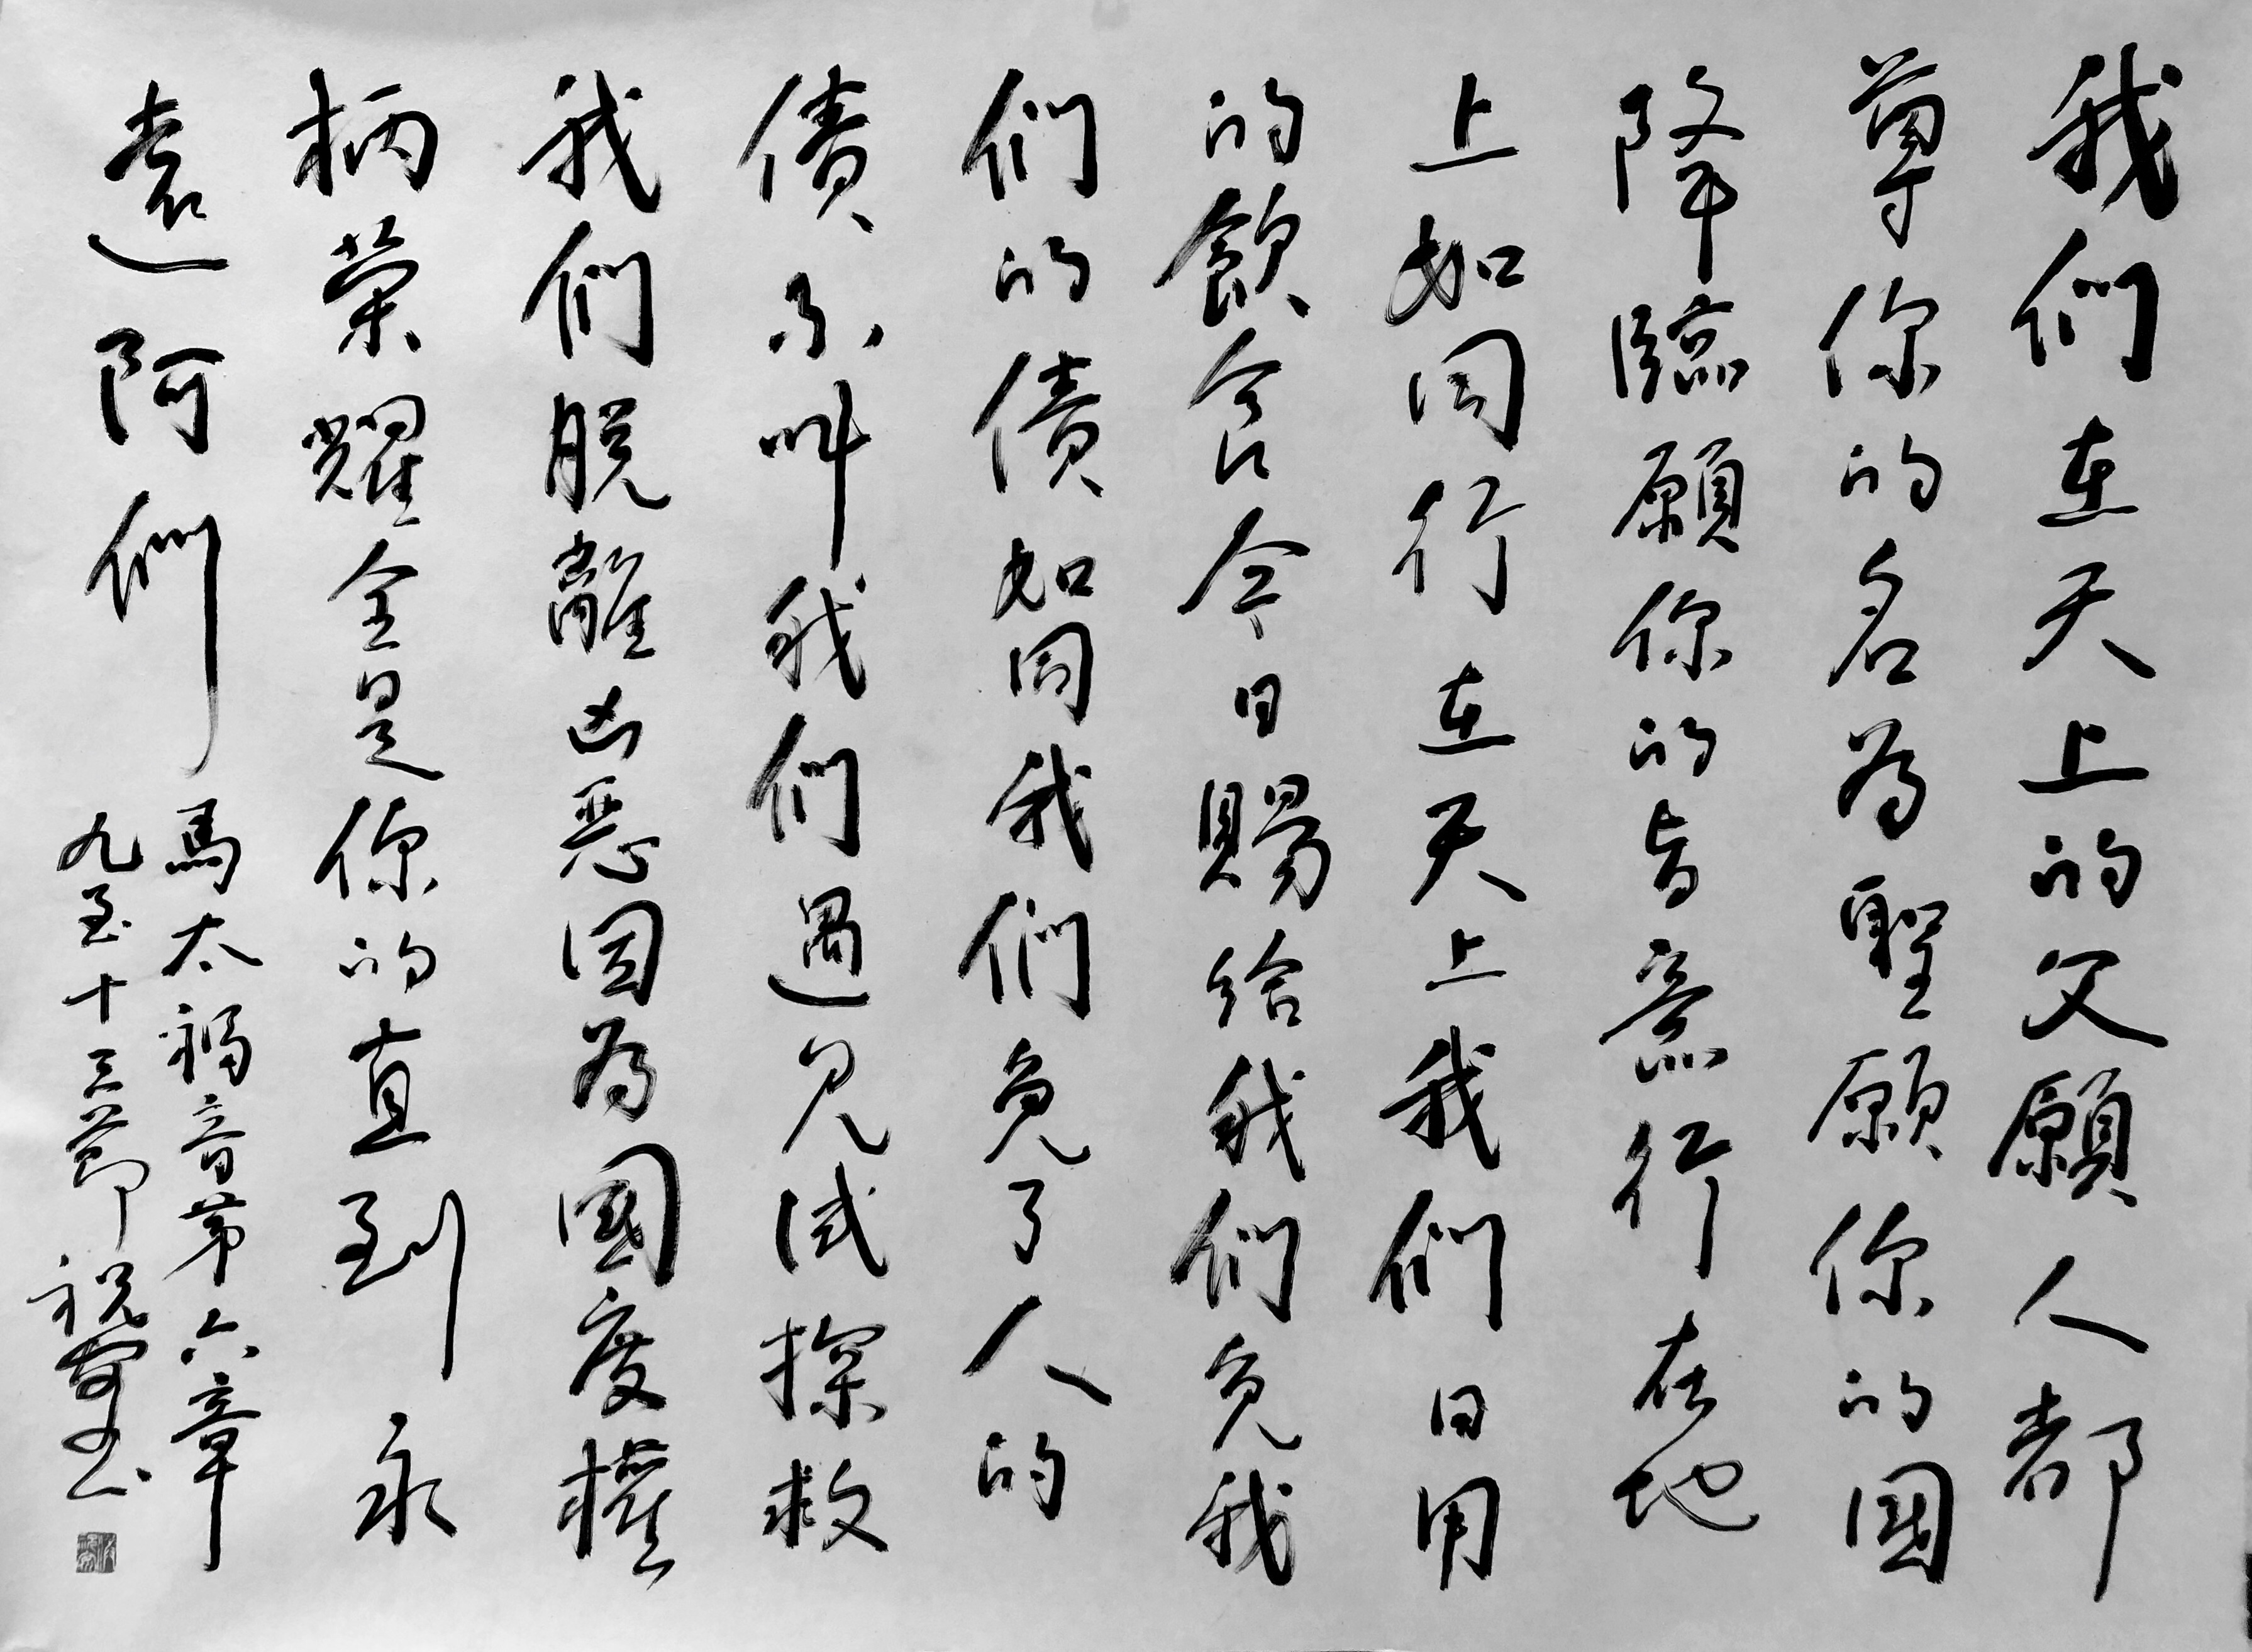 我們在天上的父願人都
尊你的名為聖願你的國
降臨願你的旨意行在地
上如同行在天上我們日用
的飲食今日賜給我們免我
們的債如同我們免了人的
債不叫我們遇見試探救
我們脫離凶惡因為國度權
柄榮耀全是你的直到永
遠阿們
馬太福音第六章
九至十三節祝書